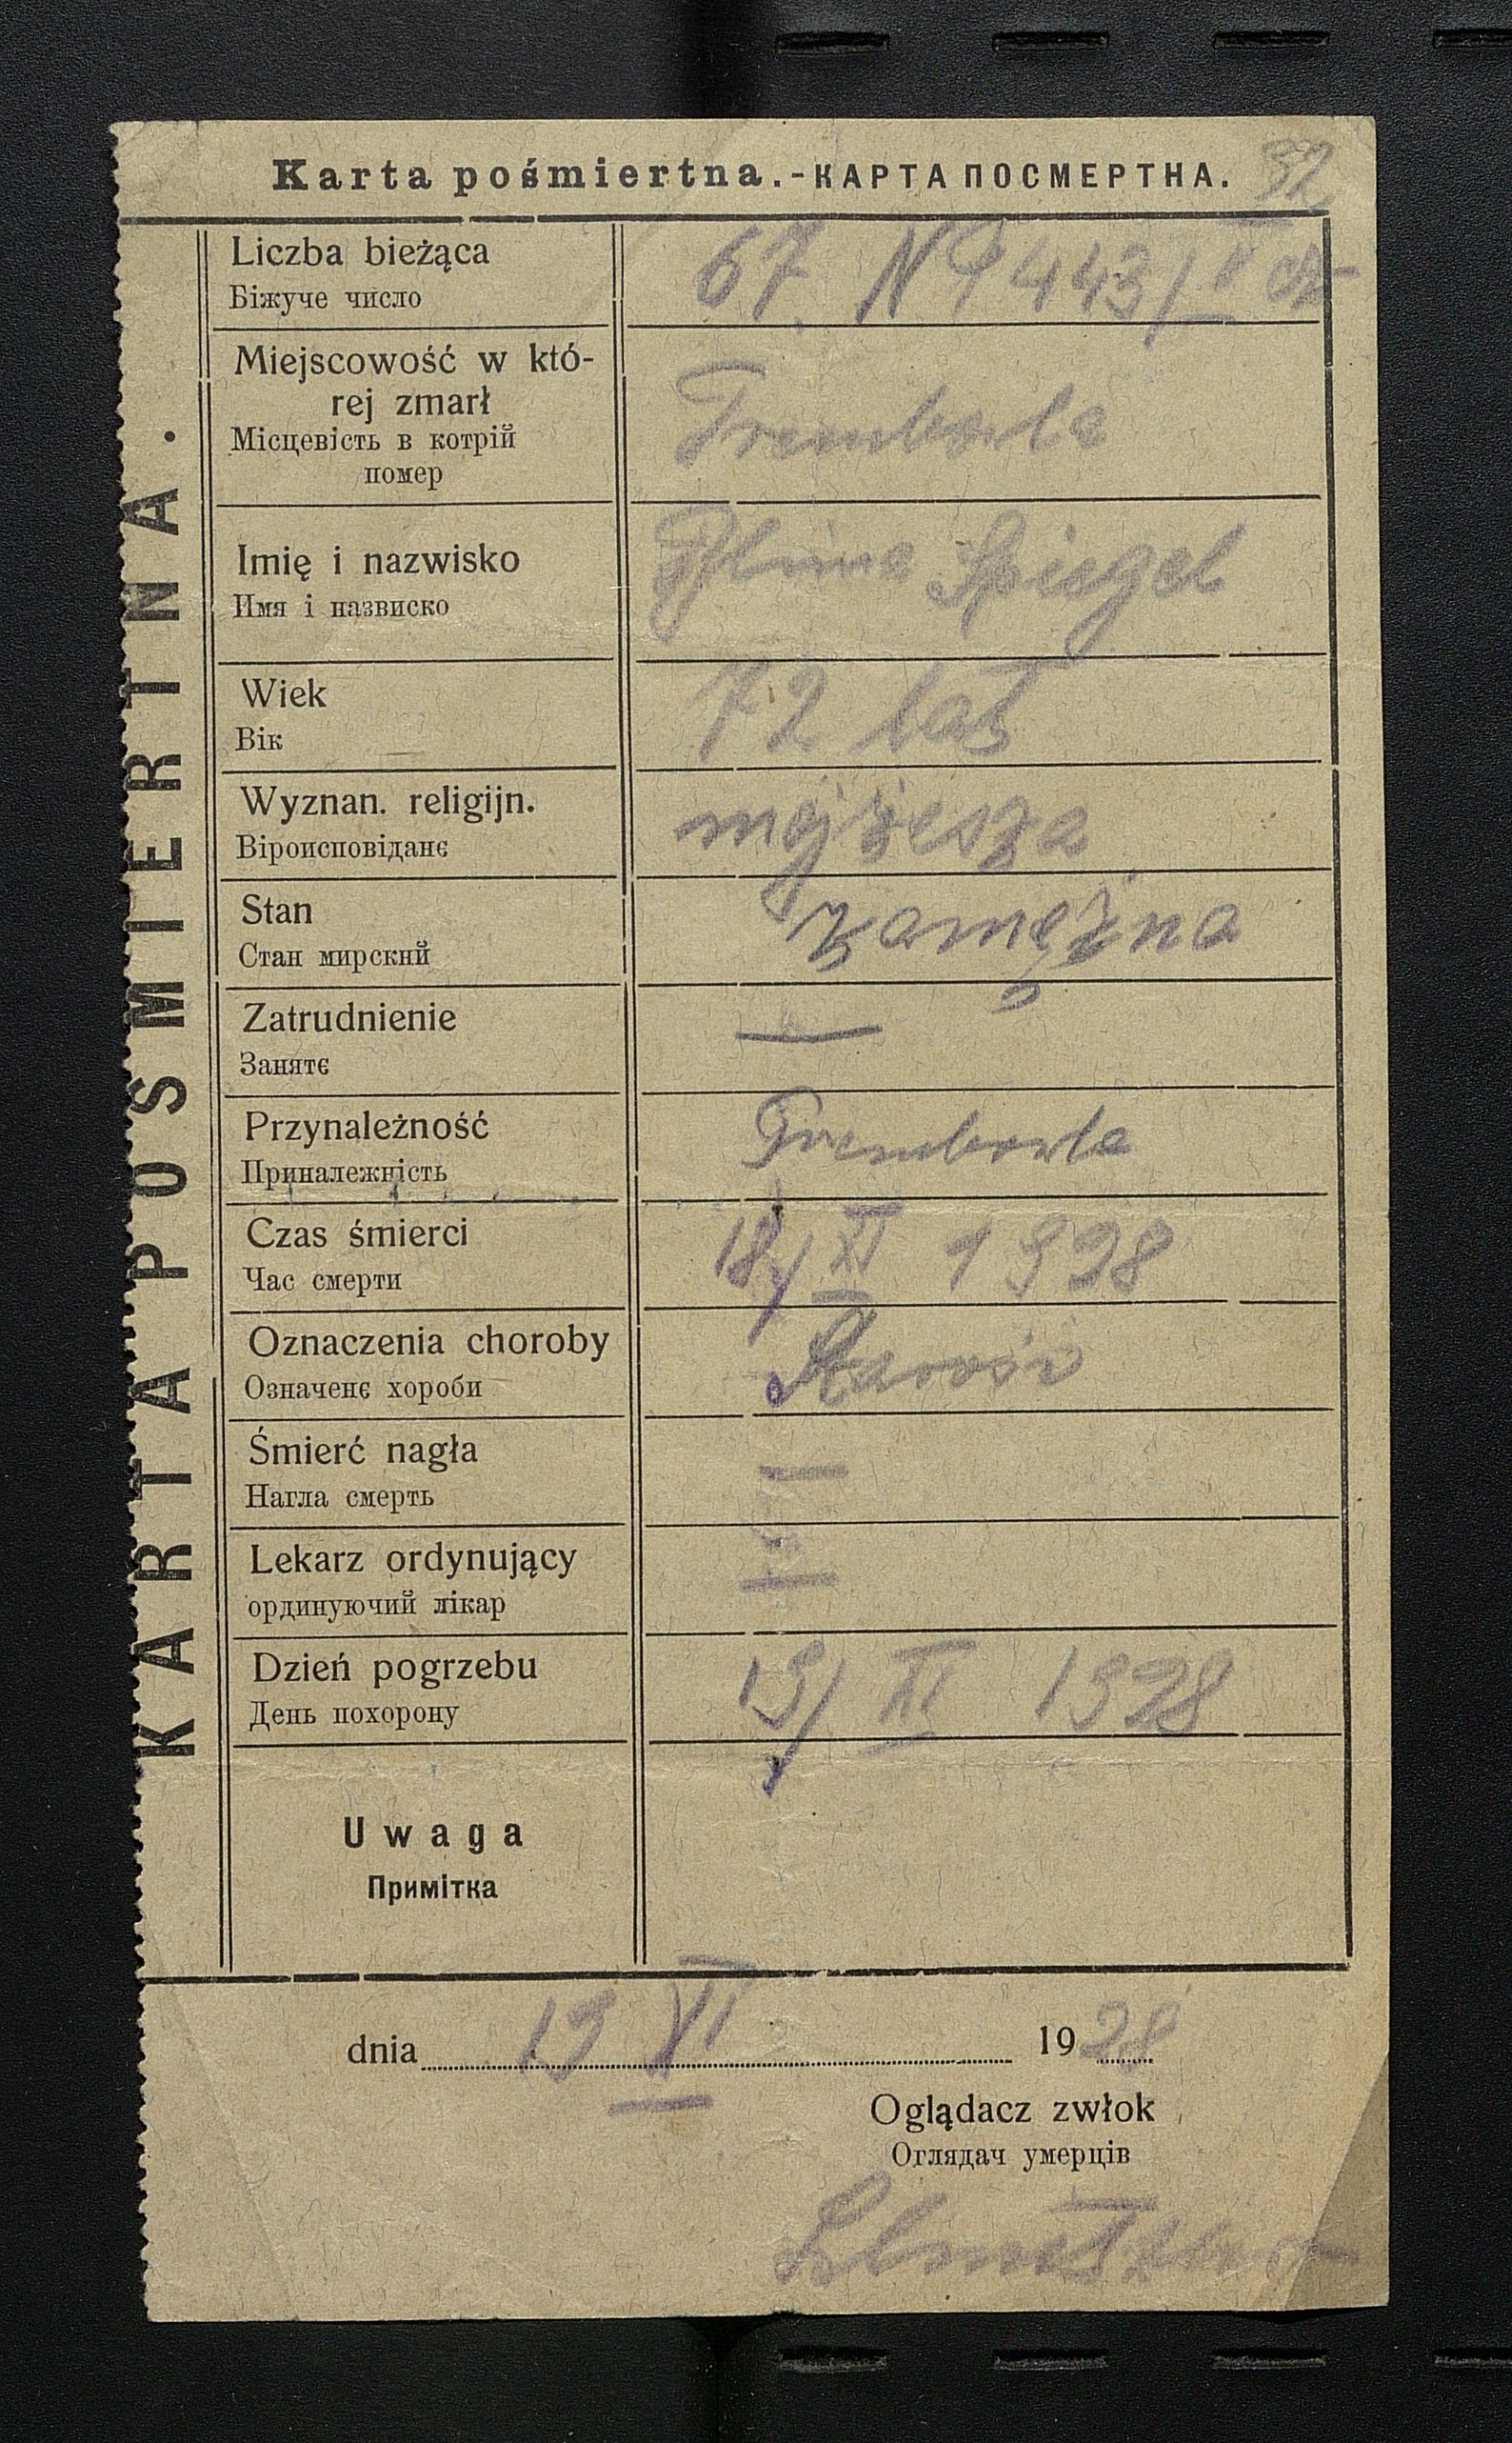 Karta pośmiertna.-КАРТА ПОСМЕРТНА. 32
KARTA POŚMIERTNA.
Liczba bieżąca 67. N 9443/
Біжуче число
Miejscowość w któ-
rej zmarł Trembowla
Місцевість в котрій
помер
Imię i nazwisko Blima Spiegel
Имя і назвиско
Wiek 72 lat
Вік
Wyznan. religijn. mojżesza
Віроисповіданє
Stan zamężna
Стан мирский
Zatrudnienie —
Занятє
Przynależność Trembowla
Приналежність
Czas śmierci 18/XI 1928
Час смерти
Oznaczenia choroby Starość
Означенє хороби
Śmierć nagła
Нагла смерть
Lekarz ordynujący
ординуючий лікар
Dzień pogrzebu 19/XI 1928
День похорону
Uwaga
Примітка
dnia 19 XI 1928
Oglądacz zwłok
Оглядач умерців